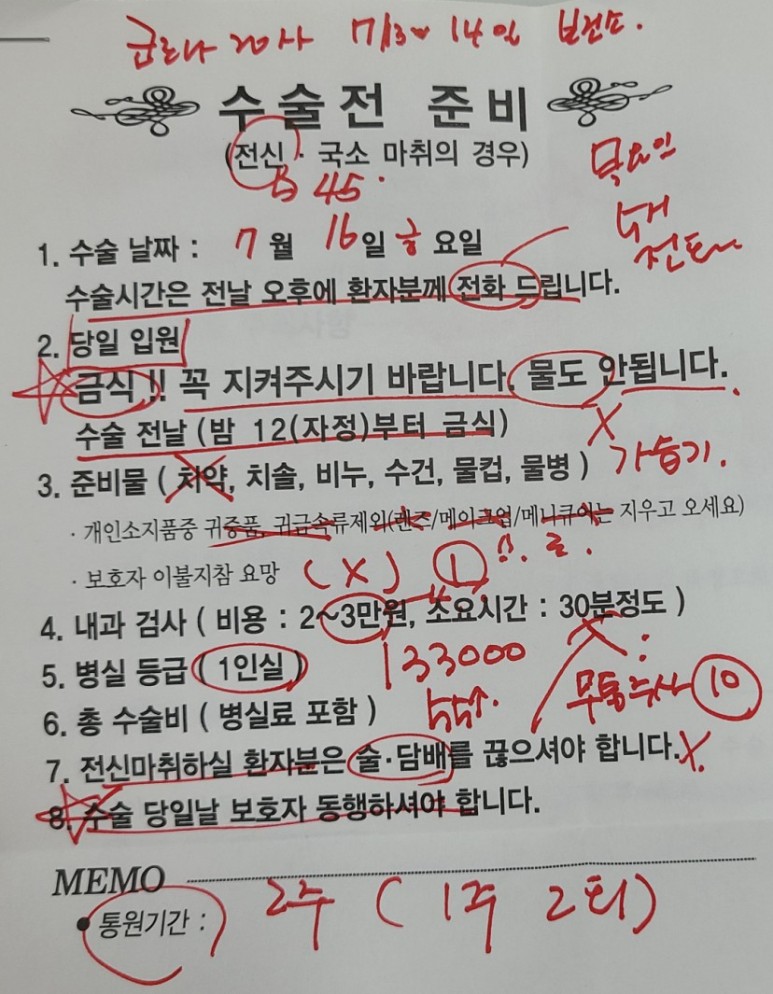 코로나 검사 7/13~14일 보건소.
수술전 준비
(전신 · 국소 마취의 경우)
45
목요일
1. 수술 날짜 : 7월 16일 금요일
수술시간은 전날 오후에 환자분께 전화 드립니다.
2. 당일 입원
금식!! 꼭 지켜주시기 바랍니다, 물도 안됩니다.
수술 전날 (밤 12(자정)부터 금식)
X
3. 준비물 ( 치약, 치솔, 비누, 수건, 물컵, 물병 ) 가습기.
· 개인소지품중 귀중품, 귀금속류제외(렌즈/메이크업/메니큐어는 지우고 오세요)
· 보호자 이불지참 요망 (X) 1
4. 내과 검사 ( 비용 : 2~3만원, 소요시간 : 30분정도 )
5. 병실 등급 ( 1인실 ) 133000
무통주사 10
6. 총 수술비 ( 병실료 포함 )
7. 전신마취하실 환자분은 술·담배를 끊으셔야 합니다. X.
8. 수술 당일날 보호자 동행하셔야 합니다.
MEMO
● 통원기간 : 2주 ( 1주 2회)